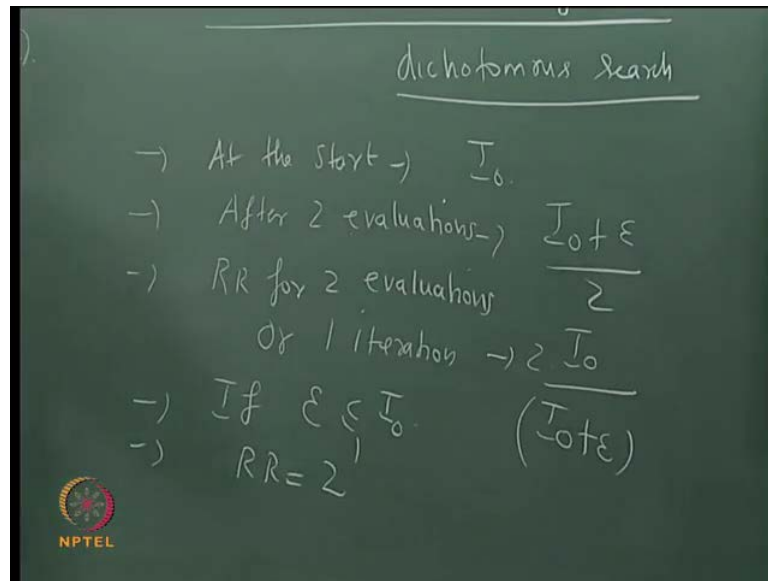 ).
dichotomous search
→ At the start → I₀.
→ After 2 evaluations → I₀+ε
2
→ RR for 2 evaluations
Or 1 iteration → 2. I₀
(I₀+ε)
→ If ε ≤ I₀,
→ RR = 2
NPTEL